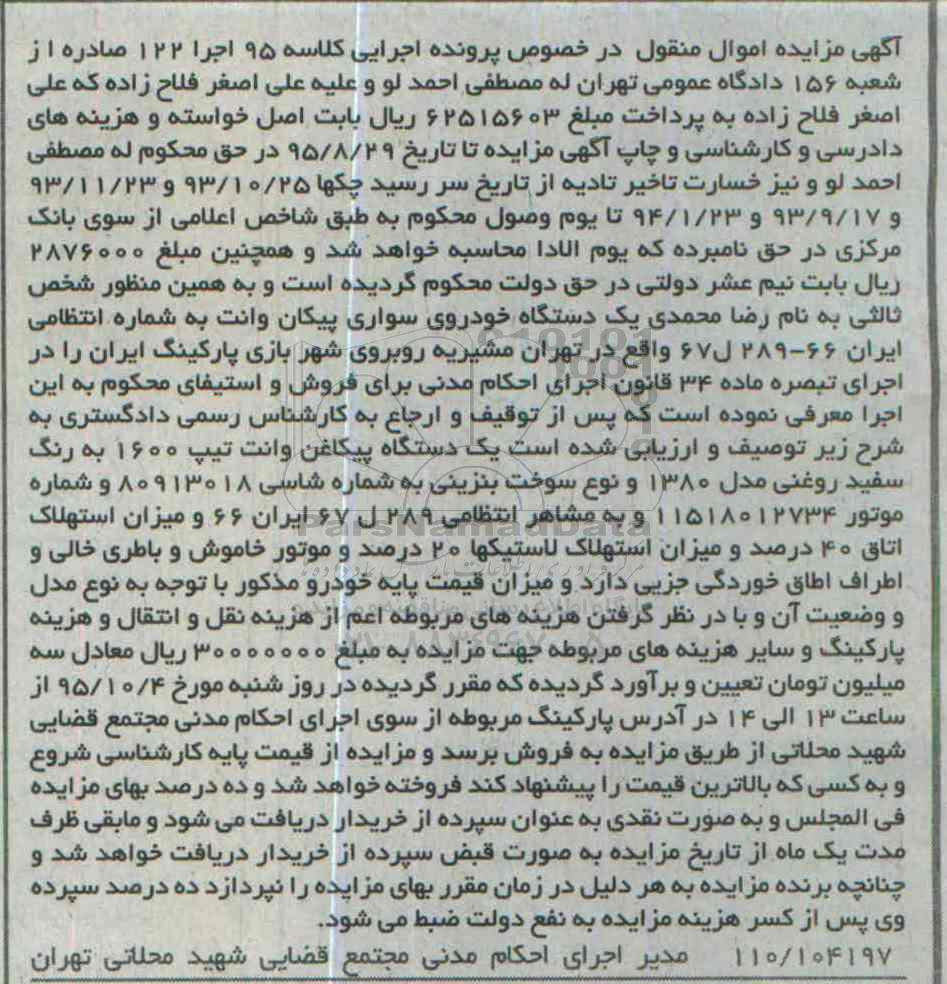 آگهی مزایده اموال منقول در خصوص پرونده اجرایی کلاسه ۹۵ اجرا ۱۲۲ صادره از
شعبه ۱۵۶ دادگاه عمومی تهران له مصطفی احمد لو و علیه علی اصغر فلاح زاده که علی
اصغر فلاح زاده به پرداخت مبلغ ۶۲۵۱۵۶۰۳ ریال بابت اصل خواسته و هزینه های
دادرسی و کارشناسی و چاپ آگهی مزایده تا تاریخ ۹۵/۸/۲۹ در حق محکوم له مصطفی
احمد لو و نیز خسارت تاخیر تادیه از تاریخ سر رسید چکها ۹۳/۱۰/۲۵ و ۹۳/۱۱/۲۳
و ۹۳/۹/۱۷ و ۹۴/۱/۲۳ تا یوم وصول محکوم به طبق شاخص اعلامی از سوی بانک
مرکزی در حق نامبرده که یوم الادا محاسبه خواهد شد و همچنین مبلغ ۲۸۷۶۰۰۰
ریال بابت نیم عشر دولتی در حق دولت محکوم گردیده است و به همین منظور شخص
ثالثی به نام رضا محمدی یک دستگاه خودروی سواری پیکان وانت به شماره انتظامی
ایران ۶۶-۲۸۹ ل۶۷ واقع در تهران مشیریه روبروی شهر بازی پارکینگ ایران را در
اجرای تبصره ماده ۳۴ قانون اجرای احکام مدنی برای فروش و استیفای محکوم به این
اجرا معرفی نموده است که پس از توقیف و ارجاع به کارشناس رسمی دادگستری به
شرح زیر توصیف و ارزیابی شده است یک دستگاه پیکاغن وانت تیپ ۱۶۰۰ به رنگ
سفید روغنی مدل ۱۳۸۰ و نوع سوخت بنزینی به شماره شاسی ۸۰۹۱۳۰۱۸ و شماره
موتور ۱۱۵۱۸۰۱۲۷۳۴ و به مشاهر انتظامی ۲۸۹ ل ۶۷ ایران ۶۶ و میزان استهلاک
اتاق ۴۰ درصد و میزان استهلاک لاستیکها ۲۰ درصد و موتور خاموش و باطری خالی و
اطراف اطاق خوردگی جزیی دارد و میزان قیمت پایه خودرو مذکور با توجه به نوع مدل
و وضعیت آن و با در نظر گرفتن هزینه های مربوطه اعم از هزینه نقل و انتقال و هزینه
پارکینگ و سایر هزینه های مربوطه جهت مزایده به مبلغ ۳۰۰۰۰۰۰۰ ریال معادل سه
میلیون تومان تعیین و برآورد گردیده که مقرر گردیده در روز شنبه مورخ ۹۵/۱۰/۴ از
ساعت ۱۳ الی ۱۴ در آدرس پارکینگ مربوطه از سوی اجرای احکام مدنی مجتمع قضایی
شهید محلاتی از طریق مزایده به فروش برسد و مزایده از قیمت پایه کارشناسی شروع
و به کسی که بالاترین قیمت را پیشنهاد کند فروخته خواهد شد و ده درصد بهای مزایده
فی المجلس و به صورت نقدی به عنوان سپرده از خریدار دریافت می شود و مابقی ظرف
مدت یک ماه از تاریخ مزایده به صورت قبض سپرده از خریدار دریافت خواهد شد و
چنانچه برنده مزایده به هر دلیل در زمان مقرر بهای مزایده را نپردازد ده درصد سپرده
وی پس از کسر هزینه مزایده به نفع دولت ضبط می شود.
۱۱۰/۱۰۴۱۹۷ مدیر اجرای احکام مدنی مجتمع قضایی شهید محلاتی تهران
ParsNamadData